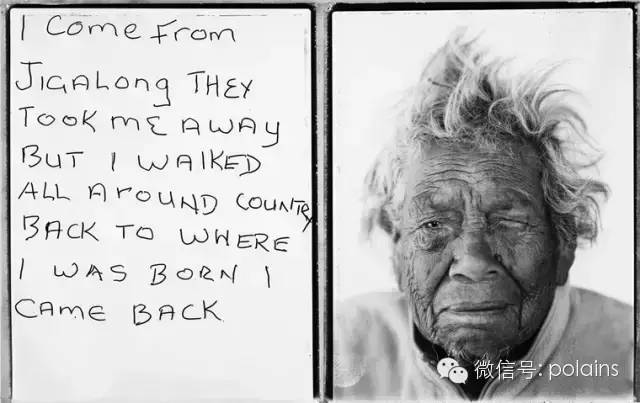 I COME FROM
JIGALONG THEY
TOOK ME AWAY
BUT I WALKED
ALL AROUND COUNTRY
BACK TO WHERE
I WAS BORN I
CAME BACK
微信号: polains